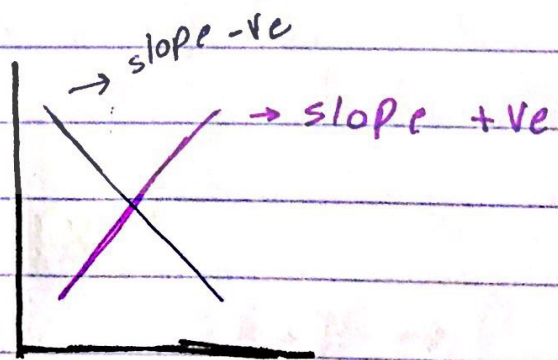 → slope -ve
→ slope +ve